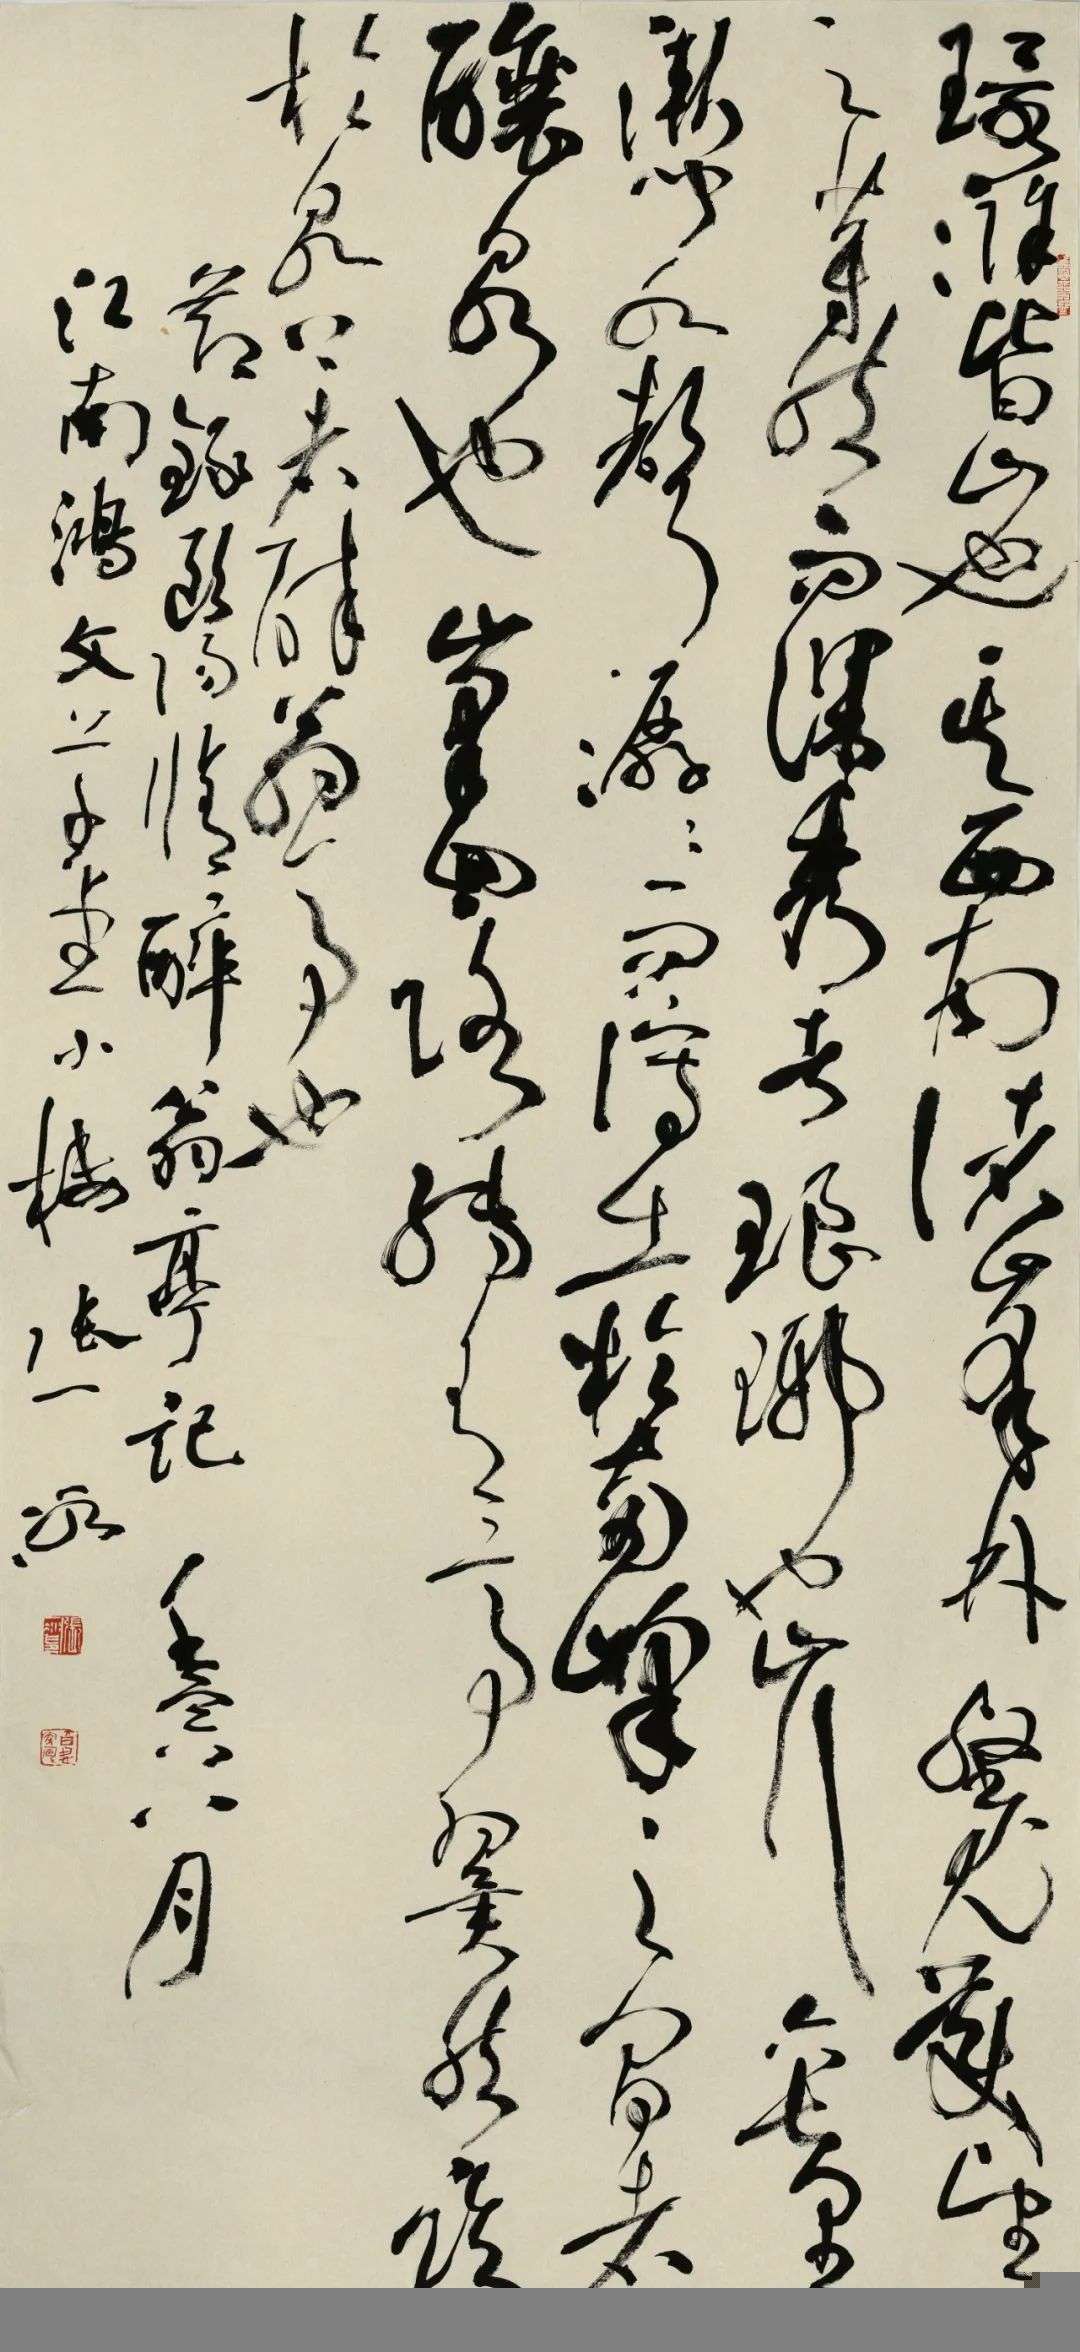 環滁皆山也其西南諸峯林壑尤美望
之蔚然而深秀者琅琊也山行六七里
漸聞水聲潺潺而瀉出於兩峯之間者
釀泉也峯回路轉有亭翼然臨
於泉上者醉翁亭也
節錄歐陽脩醉翁亭記 八月
江南鴻文 堂小樓 張一